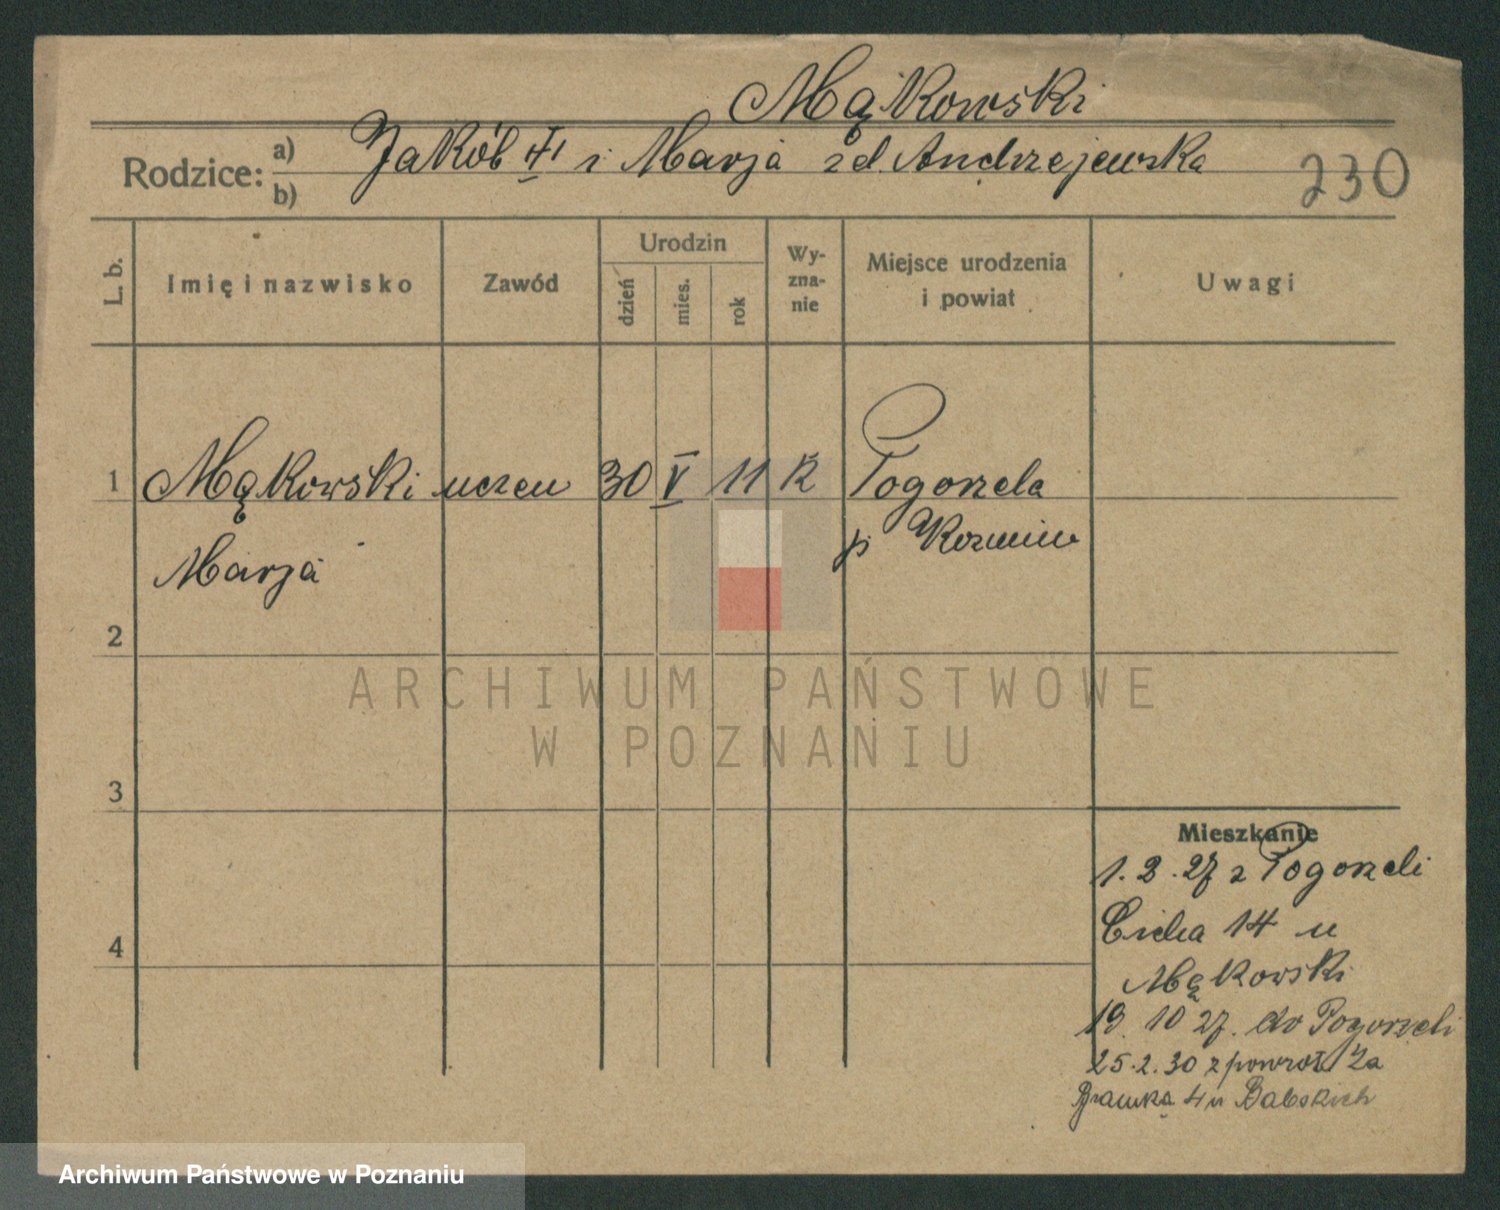 Mąkowski
Rodzice: a) b) Jakób i Marja zd. Andrzejewska 230
L. b.
Imię i nazwisko
Zawód
Urodzin
dzień
mies.
rok
Wy-
zna-
nie
Miejsce urodzenia
i powiat
Uwagi
1 Mąkowski uczeu 30 V 11 k Pogorzela
Marja p Kozmin
2
3
4
Mieszkanie
1. 2. 27 z Pogorzeli
Cicha 14 u
Mąkowski
19 10 27. do Pogorzeli
25.2.30 z powrot. Za
Bramką 4 u Babskich
ARCHIWUM PAŃSTWOWE
W POZNANIU
Archiwum Państwowe w Poznaniu